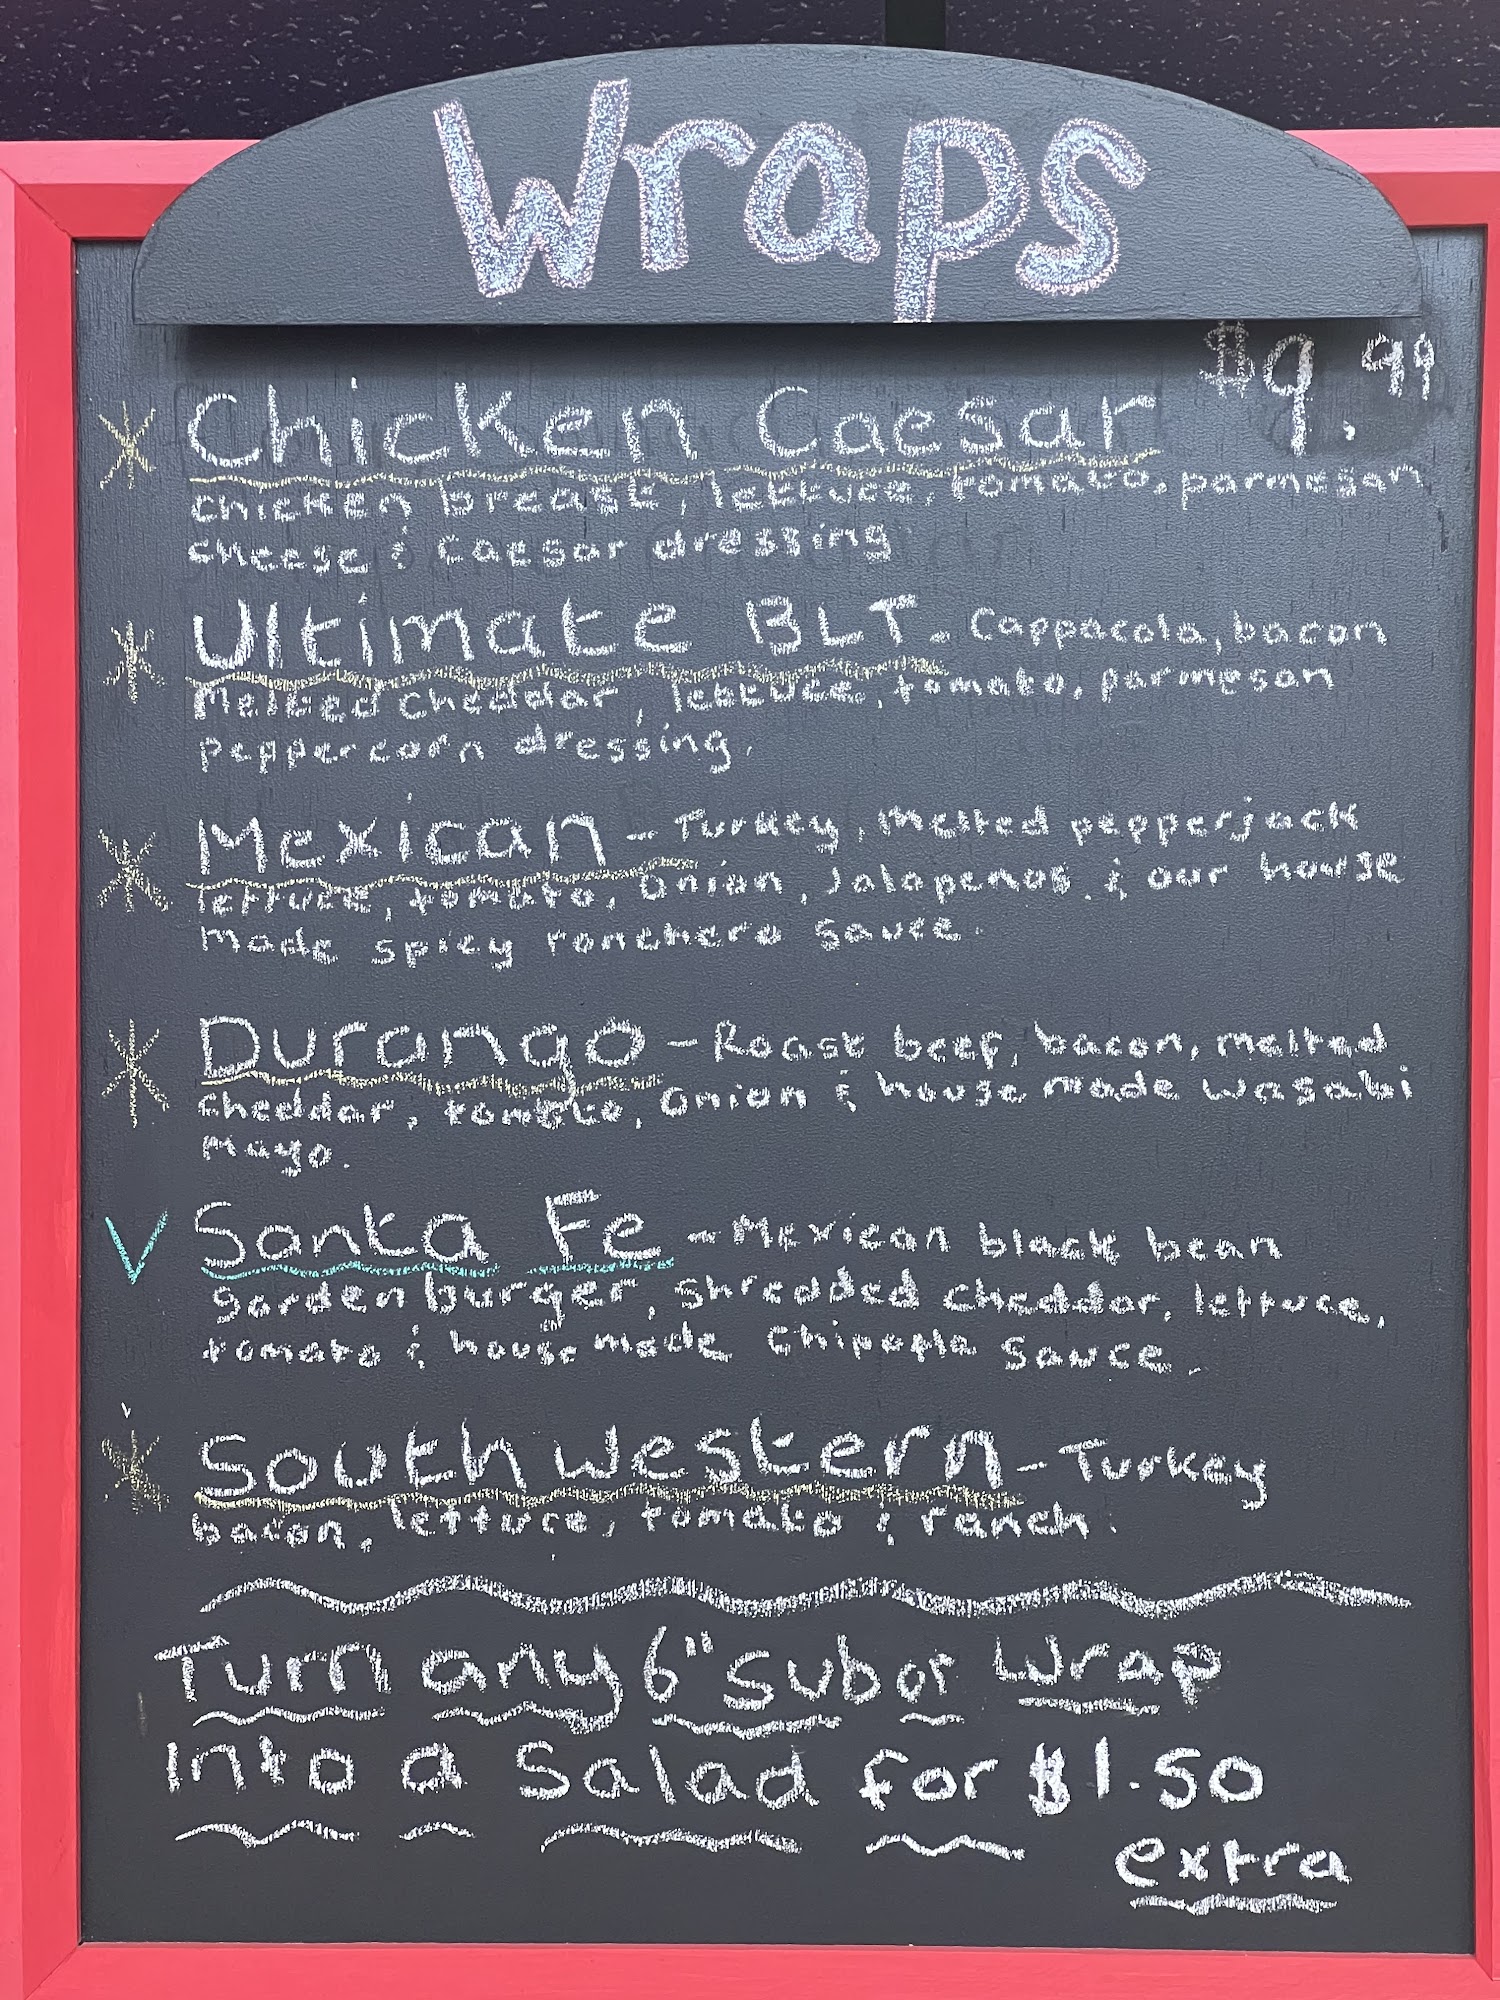 Wraps
$9.99
Chicken Caesar
chicken breast, lettuce, tomato, parmesan
cheese & caesar dressing
Ultimate BLT - Cappacola, bacon
Melted cheddar, lettuce, tomato, parmesan
peppercorn dressing.
Mexican - Turkey, melted pepperjack
lettuce, tomato, onion, Jalapenos, & our house
made spicy ranchero sauce.
Durango - Roast beef, bacon, melted
cheddar, tomato, onion & house made wasabi
mayo.
V Santa Fe - Mexican black bean
gardenburger, shredded cheddar, lettuce,
tomato & house made Chipotle sauce.
Southwestern - Turkey
bacon, lettuce, tomato & ranch.
Turn any 6" sub or wrap
Into a Salad for $1.50
extra